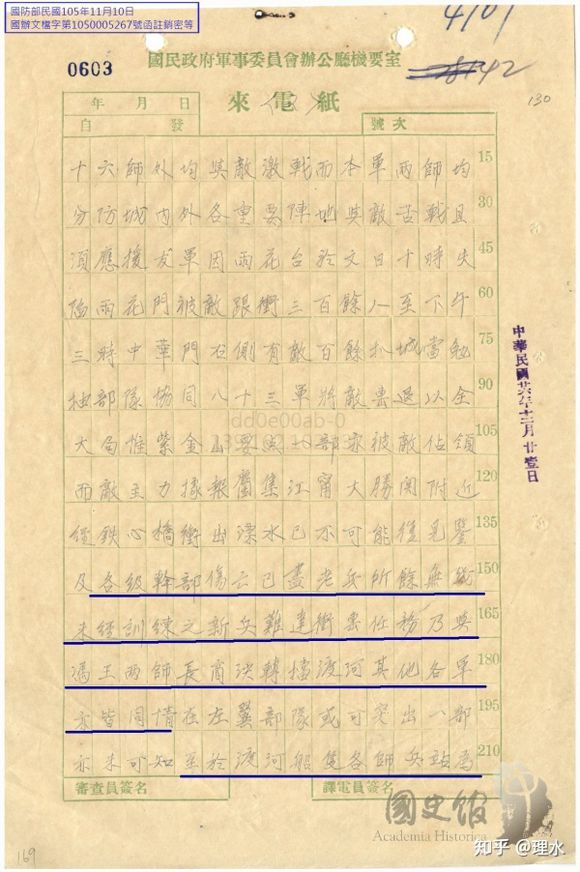 國防部民國105年11月10日
國辦文檔字第1050005267號函註銷密等
0603
國民政府軍事委員會辦公廳機要室
4101
142
130
年 月 日
來電紙
自 發
號次
十六師外均與敵激戰而本軍兩師均 15
分防城內外各重要陣地與敵苦戰且 30
須應援友軍因雨花台於文日十時失 45
陷雨花門被敵跟衝三百餘人至下午 60
三時中華門右側有敵百餘扒城當勉 75
抽部隊協同八十三軍將敵擊退以全 90
大局惟紫金山要點一部亦被敵佔領 105
而敵主力據報麕集江甯大勝関附近 120
經鉄心橋衝出溧水已不可能後見鑒 135
及各級幹部傷亡已盡老兵所餘無幾 150
未經訓練之新兵難達衝擊任務乃與 165
馮王兩師長商決轉擋渡河其他各軍 180
亦皆同情在左翼部隊或可突出一部 195
亦未可知至於渡河船隻各師兵站為 210
審查員簽名
譯電員簽名
中華民國廿六年十二月廿壹日
dd0e00ab-0
國史館
Academia Historica
知乎 @理水
169